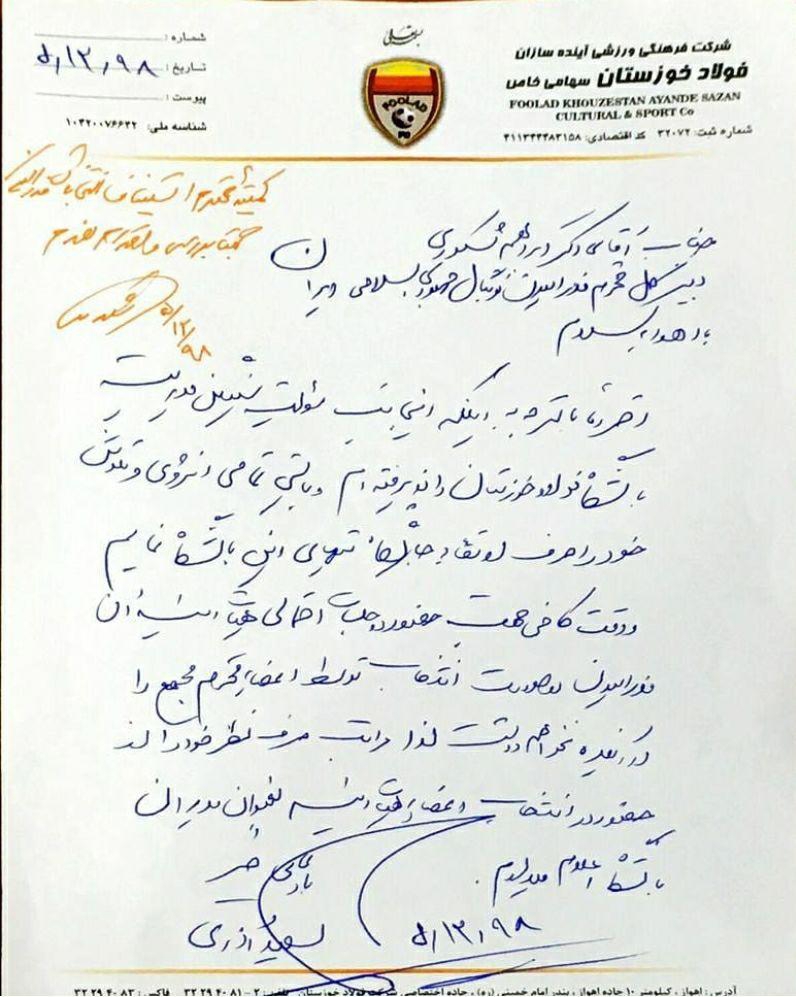 بسمه تعالی
شرکت فرهنگی ورزشی آینده سازان
فولاد خوزستان سهامی خاص
FOOLAD KHOUZESTAN AYANDE SAZAN
CULTURAL & SPORT Co
شماره ثبت: ۳۲۰۷۲ کد اقتصادی: ۴۱۱۳۴۴۴۸۳۱۵۸
FOOLAD
شماره :
تاریخ : ۵,۱۲,۹۸
پیوست :
شناسه ملی: ۱۰۴۲۰۰۷۶۶۴۲
کمیته محترم استیناف انتخابات فدراسیون
جهت بررسی و اقدام لازم
۵/۱۲/۹۸
جناب آقای دکتر ابراهیم شکوری
دبیر کل محترم فدراسیون فوتبال جمهوری اسلامی ایران
با اهداء سلام
احتراما با توجه به اینکه اینجانب مسئولیت سنگین مدیریت
باشگاه فولاد خوزستان را پذیرفته ام و بایستی تمامی انرژی و تلاش
خود را صرف ارتقاء جایگاه تیمهای این باشگاه نمایم
و وقت کافی جهت حضور در جلسات احتمالی هیات رئیسه آن
فدراسیون در صورت انتخاب توسط اعضاء محترم مجمع را
در آینده نخواهم داشت لذا مراتب صرف نظر خود را از
حضور در انتخابات اعضاء هیات رئیسه بعنوان مدیران
باشگاه اعلام میدارم.
سعید آذری
۵,۱۲,۹۸
آدرس: اهواز ، کیلومتر ۱۰ جاده اهواز ، بندر امام خمینی (ره) ، جاده اختصاصی شرکت فولاد خوزستان تلفن: ۲ - ۸۱ ۴۰ ۲۹ ۳۲ فاکس: ۸۳ ۴۰ ۲۹ ۳۲